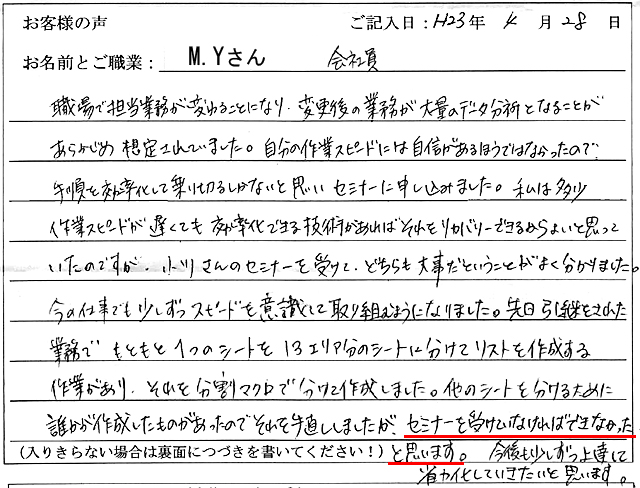 お客様の声 ご記入日：H23年 4月 28日
お名前とご職業： M.Yさん 会社員
職場で担当業務が変わることになり、変更後の業務が大量のデータ分析となることが
あらかじめ想定されていました。自分の作業スピードには自信があるほうではなかったので、
手順を効率化して乗り切るしかないと思いセミナーに申し込みました。私は多少
作業スピードが遅くても効率化できる技術があればそれをリカバリーできるからよいと思って
いたのですが、小川さんのセミナーを受けて、どちらも大事だということがよく分かりました。
今の仕事でも少しずつスピードを意識して取り組むようになりました。先日引き継をされた
業務でもともと1つのシートを13エリア分のシートに分けてリストを作成する
作業があり、それを分割マクロで分けて作成しました。他のシートを分けるために
誰かが作成したものがあったのでそれを手直ししましたが、セミナーを受けていなければできなかった
(入りきらない場合は裏面につづきを書いてください！) と思います。 今後も少しずつ上達して
省力化していきたいと思います。